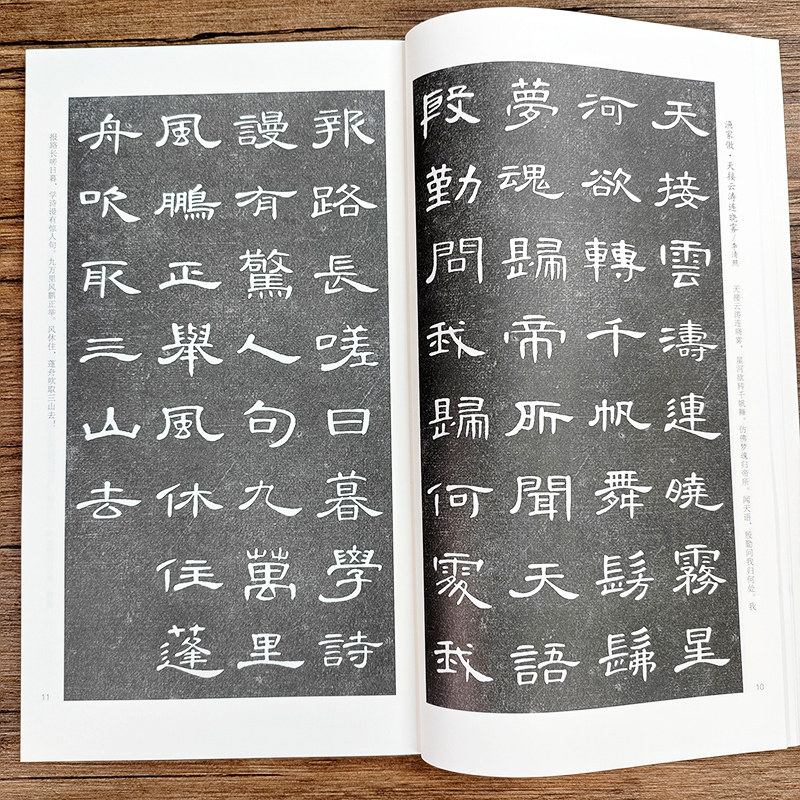 渔家傲·天接云涛连晓雾/李清照
天接云涛连晓雾，星河欲转千帆舞。仿佛梦魂归帝所，闻天语，殷勤问我归何处。我
天接雲濤連曉霧星
河欲轉千帆舞髣髴
夢魂歸帝所聞天語
殷勤問我歸何處我
10
報路長嗟日暮學詩
謾有驚人句九萬里
風鵬正舉風休住蓬
舟吹取三山去
报路长嗟日暮，学诗谩有惊人句。九万里风鹏正举。风休住，蓬舟吹取三山去！
11